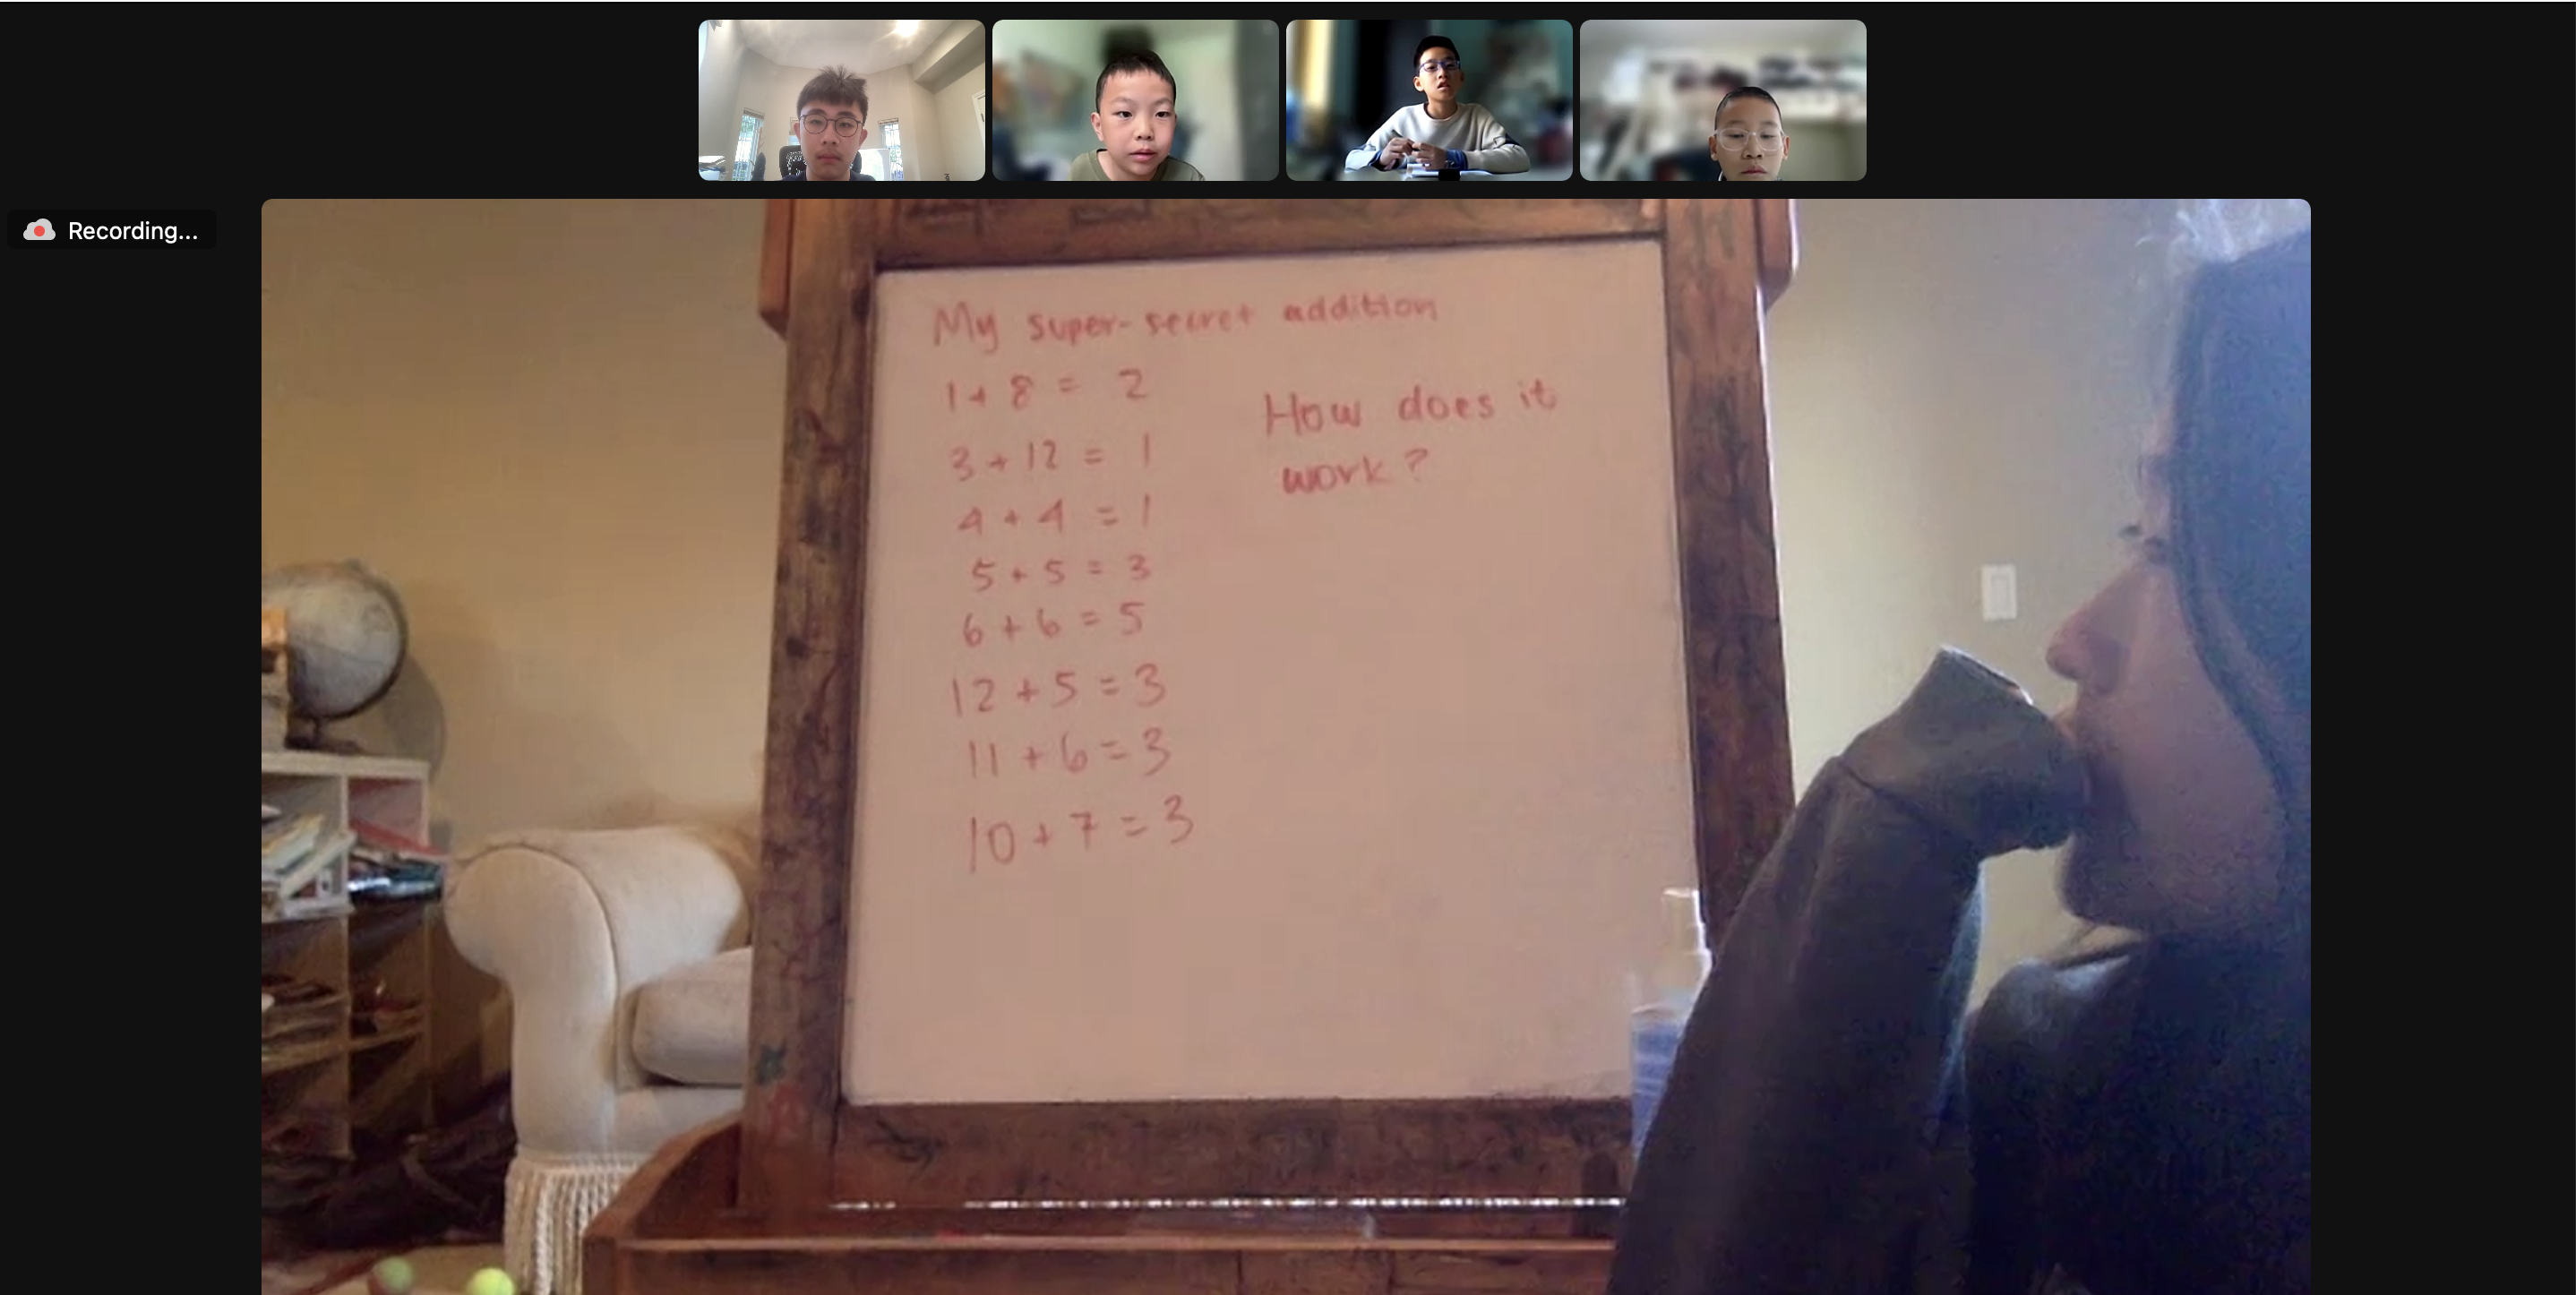 Recording...
My super-secret addition
1 + 8 = 2
3 + 12 = 1
4 + 4 = 1
5 + 5 = 3
6 + 6 = 5
12 + 5 = 3
11 + 6 = 3
10 + 7 = 3
How does it
work?